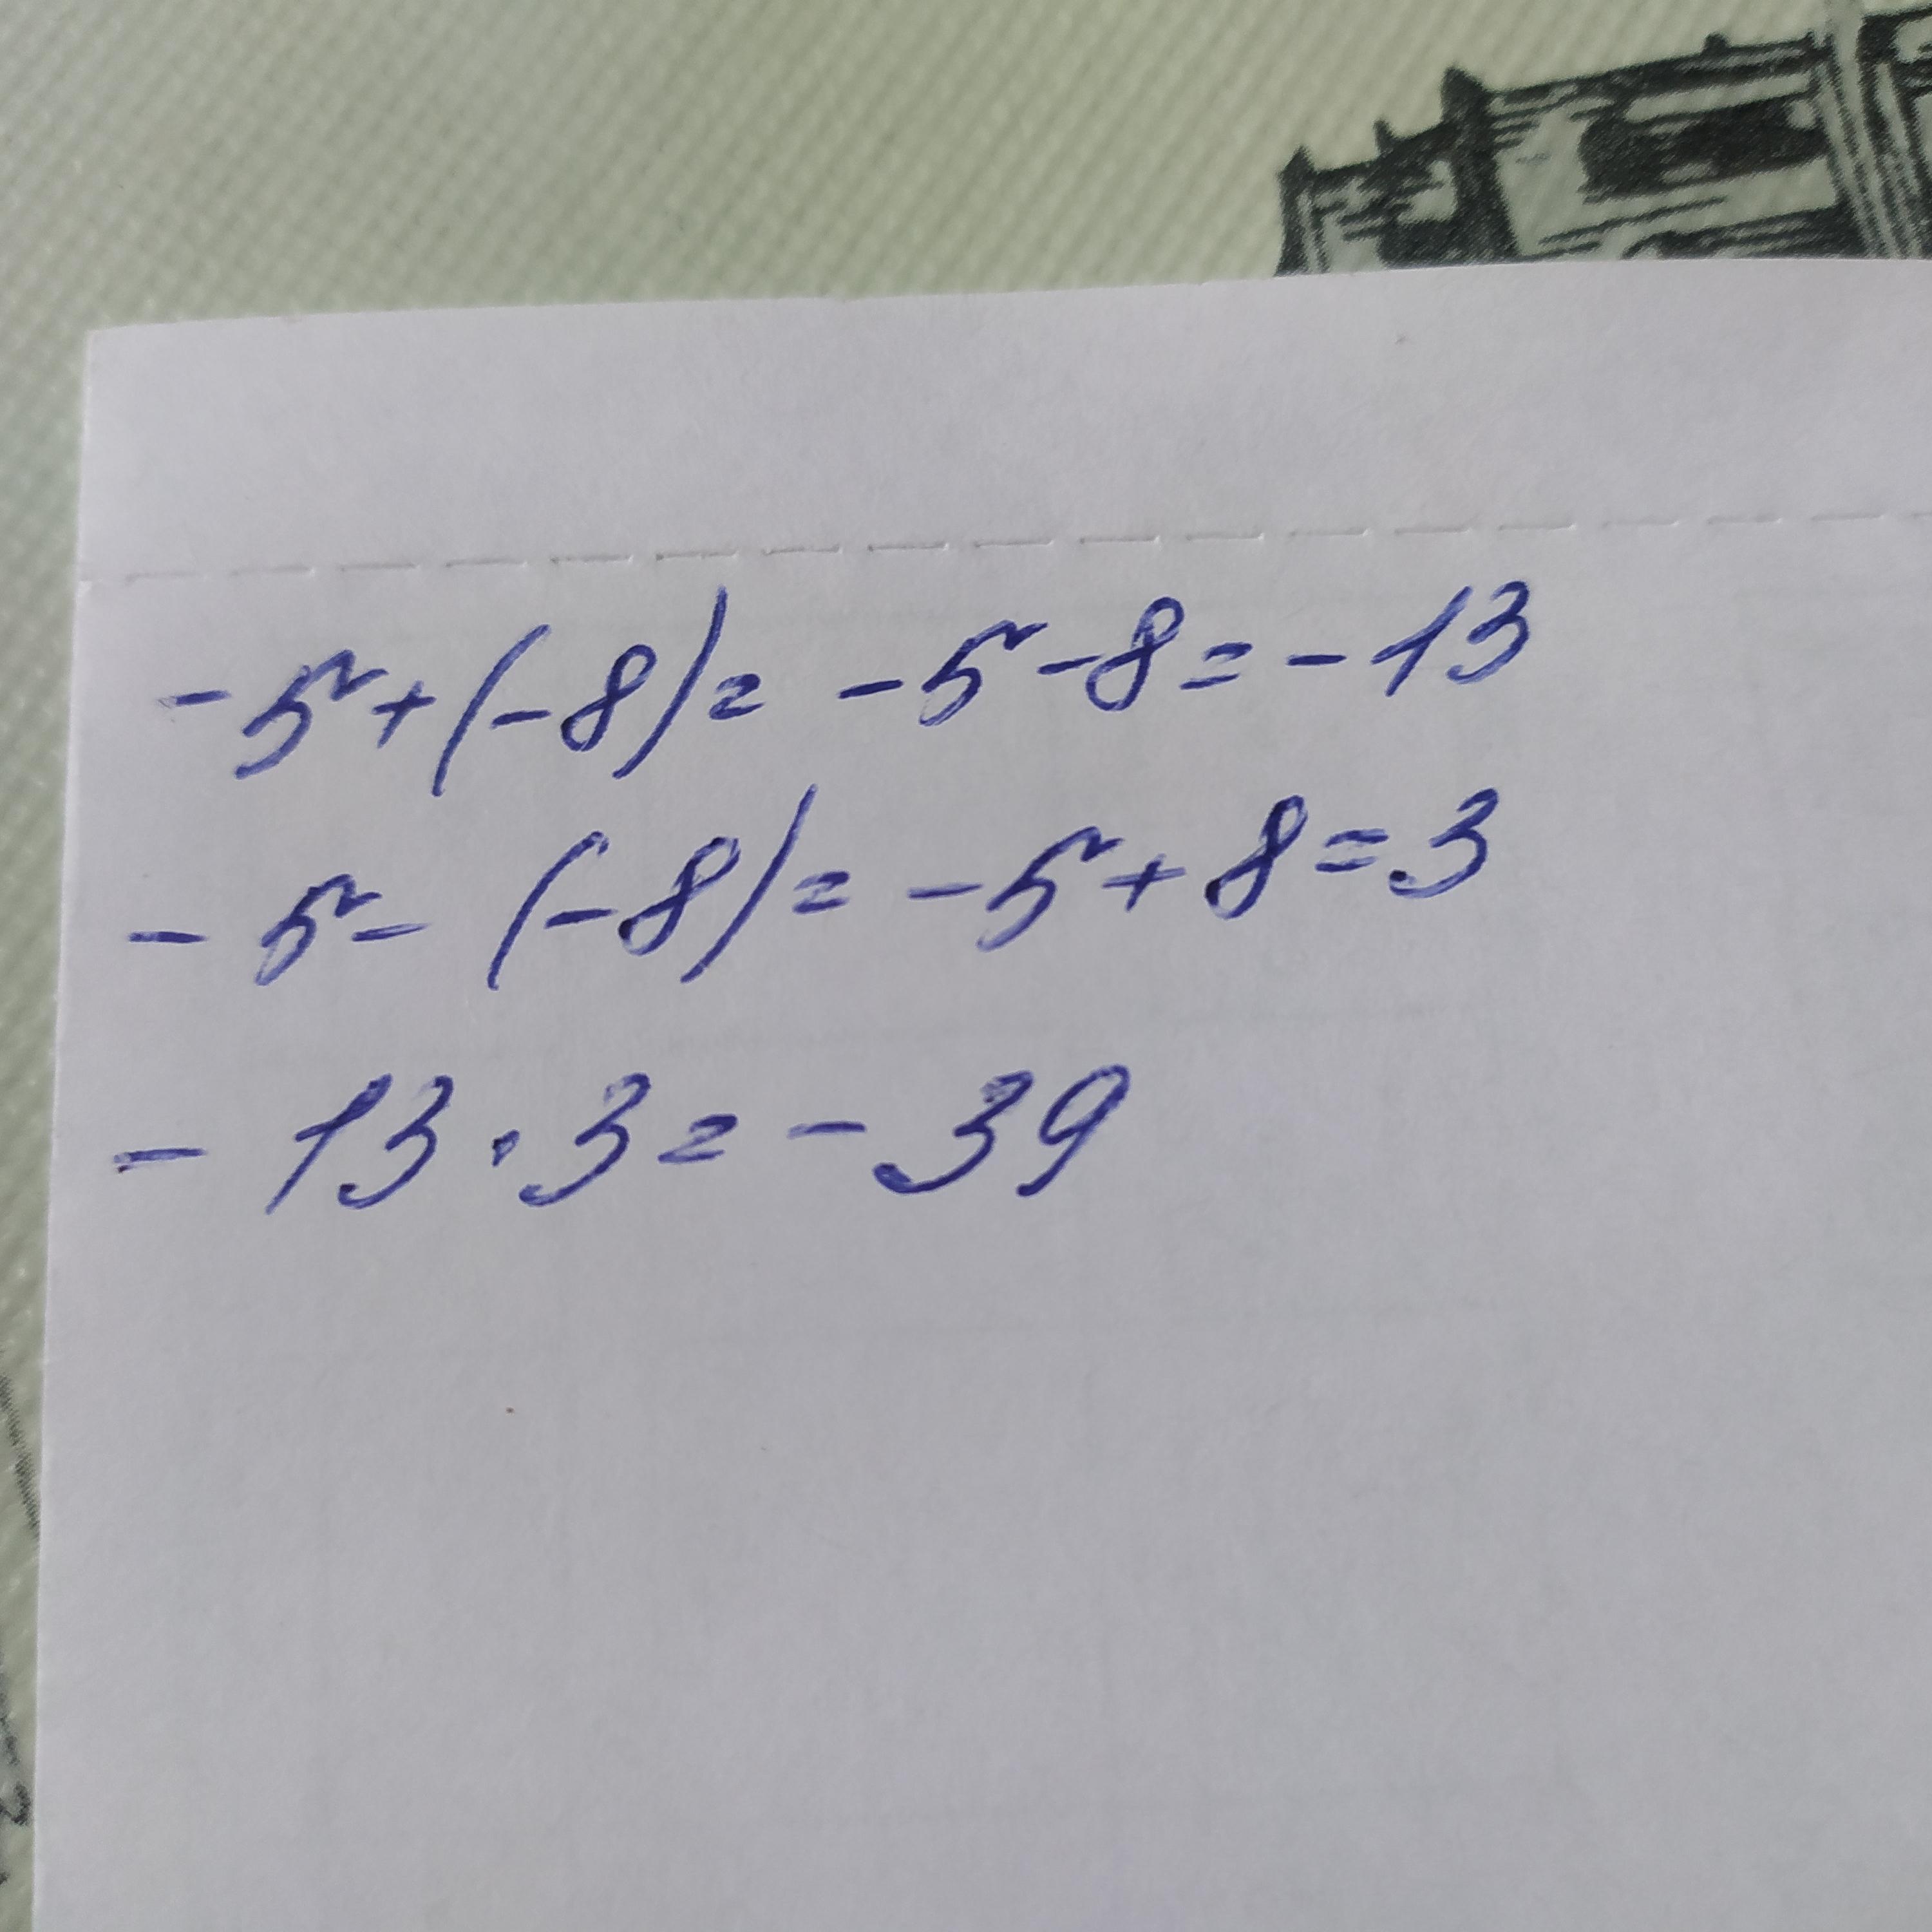 -5+(-8)= -5-8=-13
-5-(-8)= -5+8=3
-13·3=-39